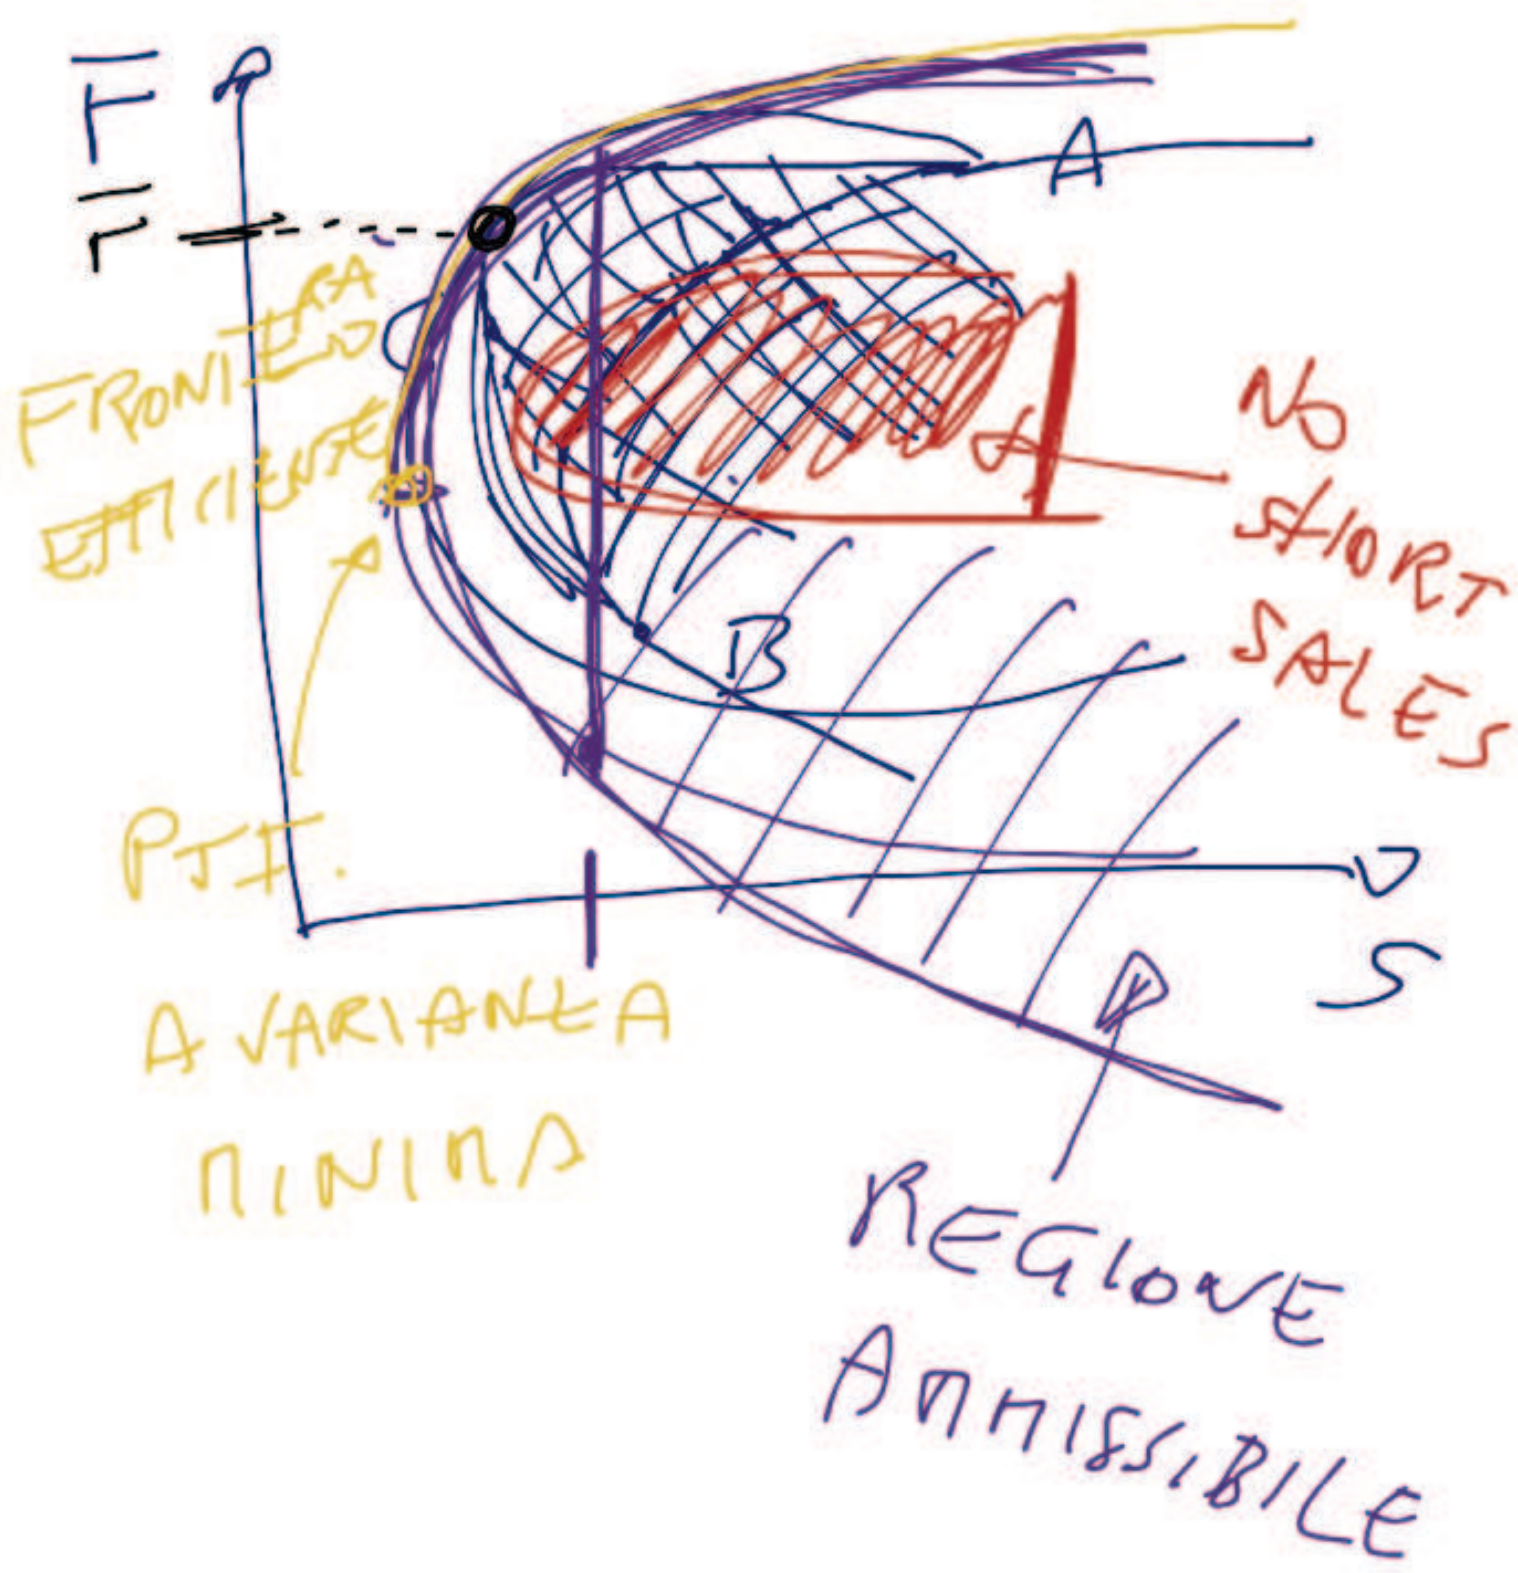 r̄
A
r̄
FRONTIERA
EFFICIENTE
NO
SHORT
SALES
B
PTF.
S
A VARIANZA
MINIMA
REGIONE
AMMISSIBILE